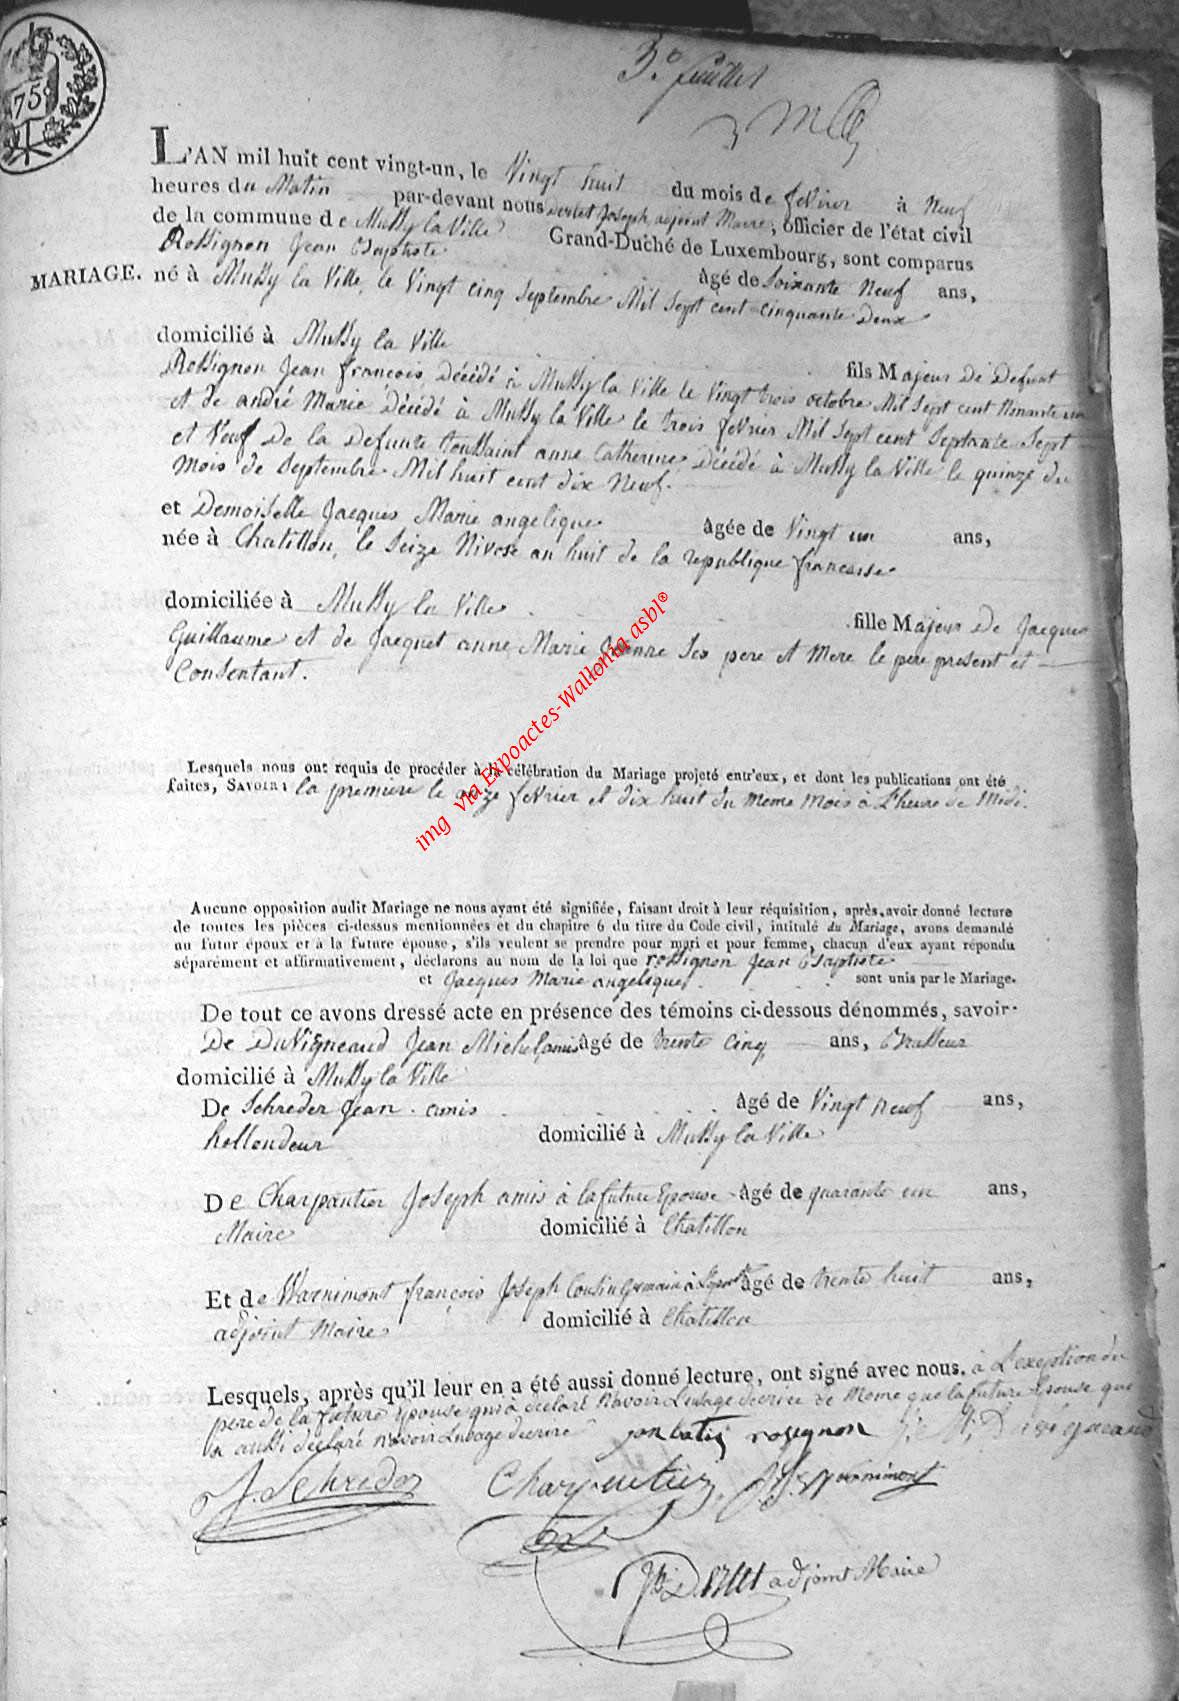 75
3e feuillet
L'AN mil huit cent vingt-un, le Vingt huit du mois de fevrier à Neuf
heures du Matin par-devant nous Joseph adjoint Maire, officier de l'état civil
de la commune de Mussy la Ville Grand-Duché de Luxembourg, sont comparus
Rossignon Jean Baptiste âgé de Soixante Neuf ans,
MARIAGE.
né à Mussy la Ville, le Vingt cinq Septembre Mil Sept cent cinquante Deux
domicilié à Mussy la Ville
fils Majeur De Defunt
Rossignon Jean françois, Décédé à Mussy la Ville le Vingt trois octobre Mil Sept cent Nonante un
et de andré Marie Décédé à Mussy la Ville le trois fevrier Mil Sept cent Septante Sept
et Veuf De la Defunte toussaint anne Catherine Décédé à Mussy la Ville le quinze du
Mois de Septembre Mil huit cent dix Neuf.
et Demoiselle Jacques Marie angelique âgée de Vingt un ans,
née à Chatillon, le Seize Nivose an huit de la republique francaise
domiciliée à Mussy la Ville
fille Majeur De Jacques
Guillaume et de Jacquet anne Marie Jeanne Ses pere et Mere le pere present et
Consentant.
Lesquels nous ont requis de procéder à la célébration du Mariage projeté entr'eux, et dont les publications ont été
faites, SAVOIR: la premiere le onze fevrier et dix huit du meme Mois a L'heure de Midi.
Aucune opposition audit Mariage ne nous ayant été signifiée, faisant droit à leur réquisition, après avoir donné lecture
de toutes les pièces ci-dessus mentionnées et du chapitre 6 du titre du Code civil, intitulé du Mariage, avons demandé
au futur époux et à la future épouse, s'ils veulent se prendre pour mari et pour femme, chacun d'eux ayant répondu
séparément et affirmativement, déclarons au nom de la loi que rossignon Jean Baptiste
et Jacques Marie angelique sont unis par le Mariage.
De tout ce avons dressé acte en présence des témoins ci-dessous dénommés, savoir.
De DuVigneaud Jean Michel amis âgé de trente Cinq ans, Brasseur
domicilié à Mussy la Ville
De Schreder Jean . amis âgé de Vingt Neuf ans,
hollondeur domicilié à Mussy la Ville
De Charpantier Joseph amis à la future Epouse âgé de quarante un ans,
Maire domicilié à Chatillon
Et de Warnimont françois Joseph Cousin Germain à âgé de trente huit ans,
adjoint Maire domicilié à Chatillon
Lesquels, après qu'il leur en a été aussi donné lecture, ont signé avec nous. à L'exeption du
pere de la future Epouse qui a declaré Navoir Lusage decrire de Meme que la future Epouse qui
a aussi declaré navoir Lusage decrire jan batis rosignon
J. Schreder Charpentier Warnimont
adjoint Maire
img via Expoactes-Wallonia asbl®